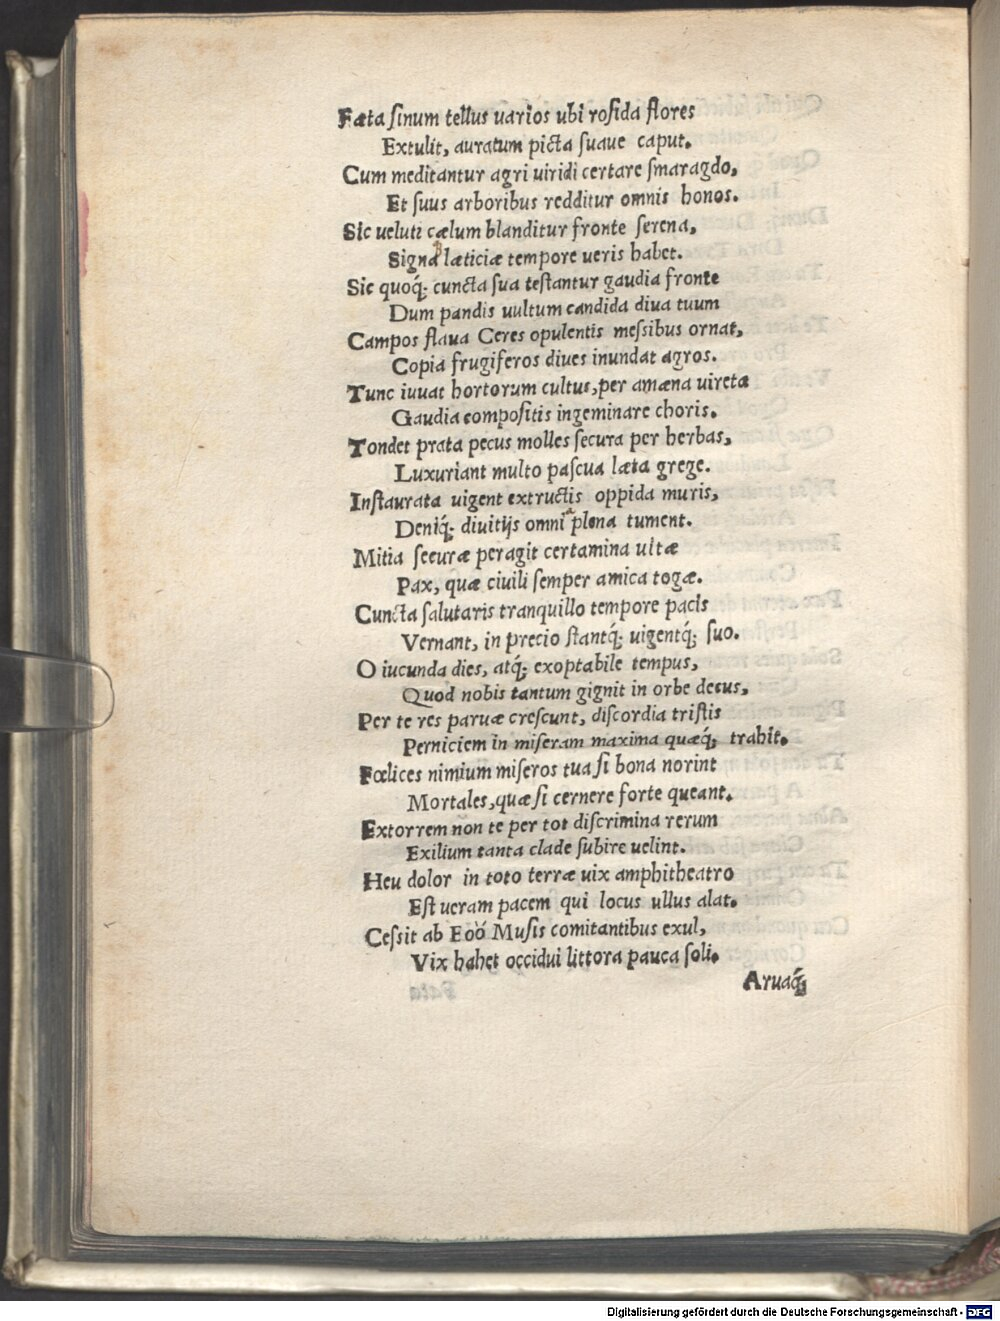 Fæta ſinum tellus uarios ubi roſida flores
Extulit, auratum picta ſuaue caput.
Cum meditantur agri uiridi certare ſmaragdo,
Et ſuus arboribus redditur omnis honos.
Sic ueluti cælum blanditur fronte ſerena,
Signa læticiæ tempore ueris habet.
Sic quoq́; cuncta ſua teſtantur gaudia fronte
Dum pandis uultum candida diua tuum
Campos flaua Ceres opulentis meſsibus ornat,
Copia frugiferos diues inundat agros.
Tunc iuuat hortorum cultus, per amæna uireta
Gaudia compoſitis ingeminare choris.
Tondet prata pecus molles ſecura per herbas,
Luxuriant multo paſcua læta grege.
Inſtaurata uigent extructis oppida muris,
Deniq́; diuitijs omnia plena tument.
Mitia ſecuræ peragit certamina uitæ
Pax, quæ ciuili ſemper amica togæ.
Cuncta ſalutaris tranquillo tempore pacis
Vernant, in precio ſtantq́; uigentq́; ſuo.
O iucunda dies, atq́; exoptabile tempus,
Quod nobis tantum gignit in orbe decus,
Per te res paruæ creſcunt, diſcordia triſtis
Perniciem in miſeram maxima quæq́; trahit.
Fœlices nimium miſeros tua ſi bona norint
Mortales, quæ ſi cernere forte queant.
Extorrem non te per tot diſcrimina rerum
Exilium tanta clade ſubire uelint.
Heu dolor in toto terræ uix amphitheatro
Eſt ueram pacem qui locus ullus alat.
Ceſsit ab Eoó Muſis comitantibus exul,
Vix habet occidui littora pauca ſoli.
Aruaq́;
Digitalisierung gefördert durch die Deutsche Forschungsgemeinschaft - DFG